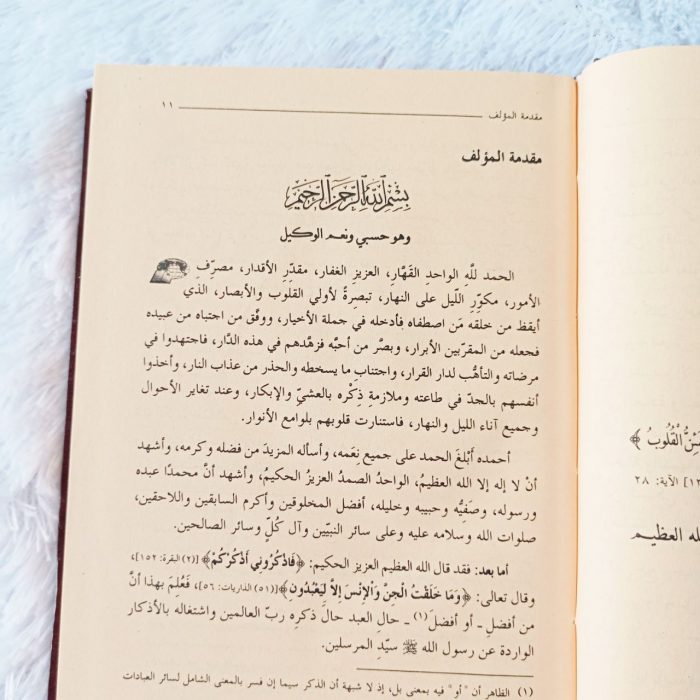 مقدمة المؤلف ١١
مقدمة المؤلف
بِسْمِ ٱللَّهِ ٱلرَّحْمَٰنِ ٱلرَّحِيمِ
وهو حسبي ونعم الوكيل
الحمد للَّهِ الواحدِ القَهَّارِ، العزيزِ الغفار، مقدّرِ الأقدار، مصرّفِ
الأمور، مكوّرِ اللّيل على النهار، تبصرةً لأولي القلوب والأبصار، الذي
أيقظ من خلقه مَن اصطفاه فأدخله في جملة الأخيار، ووفّق من اجتباه من عبيده
فجعله من المقرّبين الأبرار، وبصَّر من أحبَّه فزهَّدهم في هذه الدَّار، فاجتهدوا في
مرضاته والتأهُّب لدار القرار، واجتنابِ ما يسخطه والحذر من عذاب النار، وأخذوا
أنفسهم بالجدّ في طاعته وملازمةِ ذِكْره بالعشيّ والإبكار، وعند تغاير الأحوال
وجميع آناء الليل والنهار، فاستنارت قلوبهم بلوامع الأنوار.
أحمده أَبْلغَ الحمد على جميع نِعَمه، وأسأله المزيدَ من فضله وكرمه، وأشهد
أنْ لا إله إلا الله العظيمُ، الواحدُ الصمدُ العزيزُ الحكيمُ، وأشهد أنَّ محمدًا عبده
ورسوله، وصَفِيُّه وحبيبه وخليله، أفضل المخلوقين وأكرم السابقين واللاحقين،
صلوات الله وسلامه عليه وعلى سائر النبيّين وآل كُلٍّ وسائر الصالحين.
أما بعد: فقد قال الله العظيم العزيز الحكيم: ﴿فَاذْكُرُوني أَذْكُرْكُمْ﴾ [(٢) البقرة: ١٥٢]،
وقال تعالى: ﴿وَمَا خَلَقْتُ الْجِنَّ وَالْإِنْسَ إِلاَّ لِيَعْبُدُونِ﴾ [(٥١) الذاريات: ٥٦]، فَعُلِمَ بهذا أنَّ
من أفضلِ ـ أو أفضلَ(١) ـ حالِ العبد حالَ ذكرِه ربّ العالمين واشتغاله بالأذكار
الواردة عن رسول الله ﷺ سيّدِ المرسلين.
(١) الظاهر أن "أو" فيه بمعنى بل، إذ لا شبهة أن الذكر سيما إن فسر بالمعنى الشامل لسائر العبادات
الْقُلُوبُ﴾
الآية: ٢٨
لله العظيم